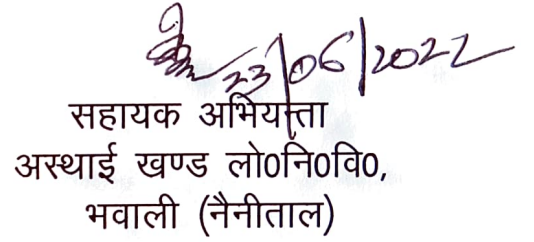 23/06/2022
सहायक अभियन्ता
अस्थाई खण्ड लो0नि0वि0,
भवाली (नैनीताल)